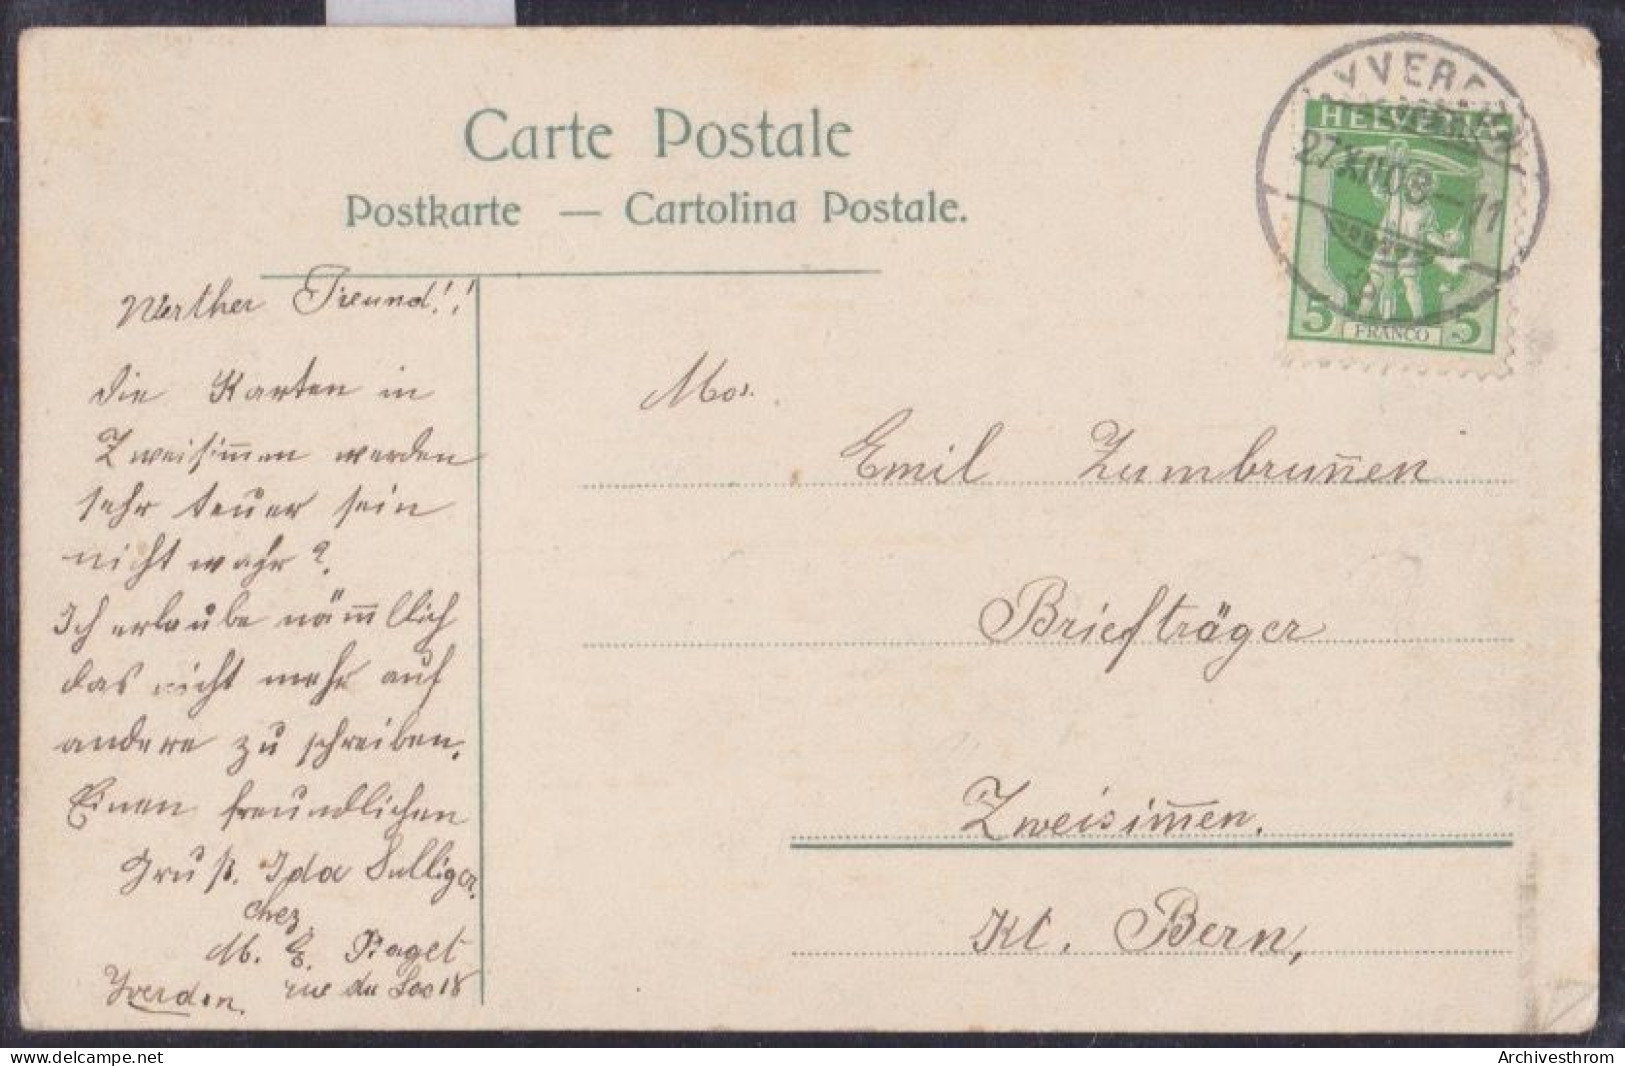 Carte Postale
Postkarte — Cartolina Postale.
YVERDON
27.XII.09–11
HELVETIA
5 FRANCO 5
Werther Freund!!
die Karten in
Zweisim̅en werden
sehr teuer sein
nicht wahr?
Ich erlaube näm̅llich
das nicht mehr auf
andere zu schreiben.
Einen freundlichen
Gruß. Ida Sulliger.
chez
M. E. Piaget
rue du Lac 18
Yverdon.
Mos.
Emil Zumbrun̅en
Briefträger
Zweisim̅en.
Kt. Bern,
delcampe.net
Archivesthrom